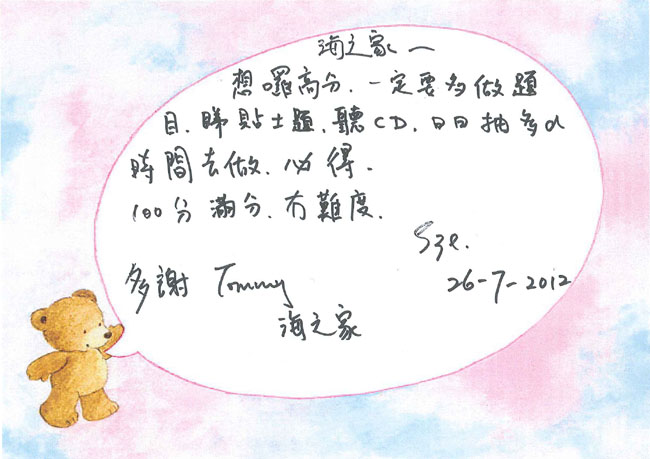 海之家一
想囉高分.一定要多做題
目.睇貼士題.聽CD.日日抽多d
時間去做.必得.
100分滿分.冇難度.
Sze.
多謝 Tommy 26-7-2012
海之家